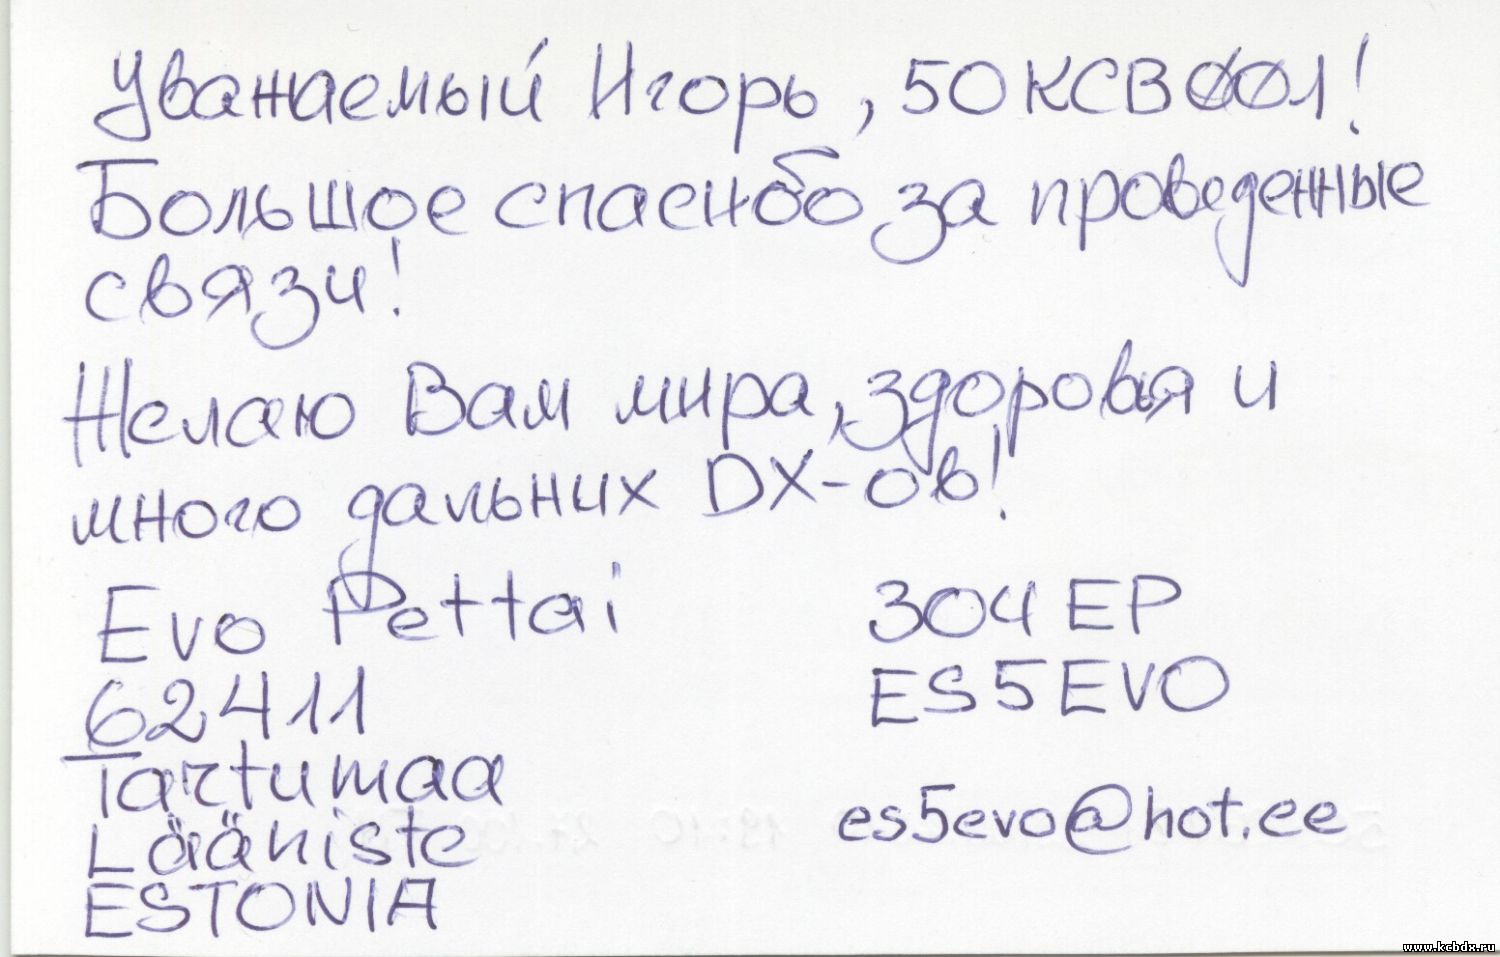 Уважаемый Игорь, 50КСВ001!
Большое спасибо за проведенные
связи!
Желаю Вам мира, здоровья и
много дальних DX-ов!
Evo Pettai
304EP
62411
ES5EVO
Tartumaa
es5evo@hot.ee
Lääniste
ESTONIA
www.kcbdx.ru